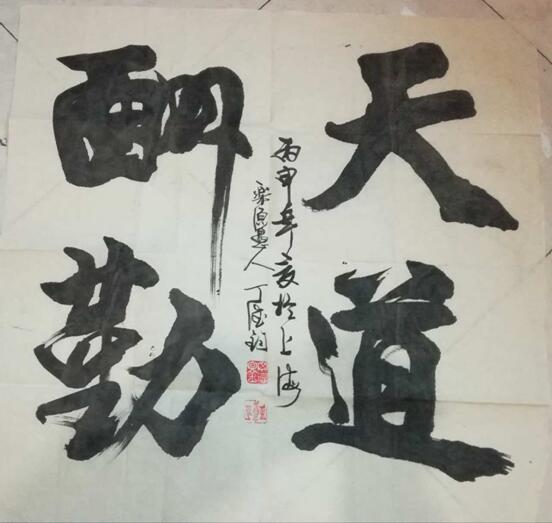 天道
酬勤
丙申年夏於上海
愚人 丁